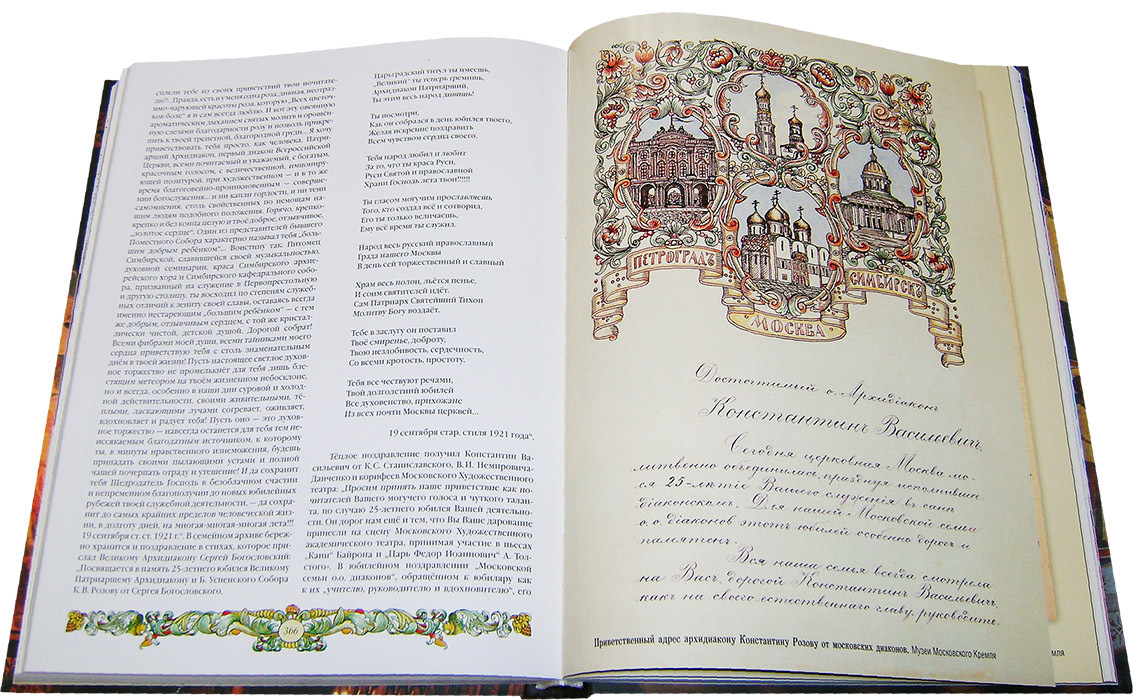 сплели тебе из своих приветствий твои почитате-
ли?!.. Правда, есть и у меня одна роза, дивная, неотраз-
имо-чарующей красоты роза, которую „Всех цветоч-
ков боле“ я и сам всегда люблю. И вот эту овеянную
ароматическим дыханием святых молитв и орошён-
ную слезами благодарности розу и позволь прикре-
пить к твоей трепетной, благородной груди... Я хочу
приветствовать тебя просто, как человека, Патри-
арший Архидиакон, первый диакон Всероссийской
Церкви, всеми почитаемый и уважаемый, с богатым,
красочным голосом, с величественной, импониру-
ющей позитурой, при художественном — и в то же
время благоговейно-проникновенном — соверше-
нии богослужения... и ни капли гордости, и ни тени
самомнения, столь свойственных по немощам на-
шим людям подобного положения. Горячо, крепко-
крепко и без конца целую и твоё доброе, отзывчивое,
„золотое сердце“. Один из представителей бывшего
Поместного Собора характерно называл тебя „боль-
шим добрым ребёнком“... Воистину так. Питомец
Симбирской, славившейся своей музыкальностью,
духовной семинарии, краса Симбирского архие-
рейского хора и Симбирского кафедрального собо-
ра, призванный на служение в Первопрестольную
и другую столицу, ты восходил по степеням служеб-
ных отличий к зениту своей славы, оставаясь всегда
именно нестареющим „большим ребёнком“ — с тем
же добрым, отзывчивым сердцем, с той же кристал-
лически чистой, детской душой. Дорогой собрат!
Всеми фибрами моей души, всеми тайниками моего
сердца приветствую тебя с столь знаменательным
днём в твоей жизни! Пусть настоящее светлое духов-
ное торжество не промелькнёт для тебя лишь бле-
стящим метеором на твоём жизненном небосклоне,
но и всегда, особенно в наши дни суровой и холод-
ной действительности, своими живительными, тё-
плыми, ласкающими лучами согревает, оживляет,
вдохновляет и радует тебя! Пусть оно — это духов-
ное торжество — навсегда останется для тебя тем не-
иссякаемым благодатным источником, к которому
ты, в минуты нравственного изнеможения, будешь
припадать своими пылающими устами и полной
чашей почерпать отраду и утешение! И да сохранит
тебя Щедродатель Господь в безоблачном счастии
и непременном благополучии до новых юбилейных
рубежей твоей служебной деятельности, — да сохра-
нит до самых крайних пределов человеческой жиз-
ни, в долготу дней, на многая-многая-многая лета!!!
19 сентября ст. ст. 1921 г.“. В семейном архиве береж-
но хранится и поздравление в стихах, которое при-
слал Великому Архидиакону Сергей Богословский:
„Посвящается в память 25-летнего юбилея Великому
Патриаршему Архидиакону и Б. Успенского Собора
К. В. Розову от Сергея Богословского.
Царьградский титул ты имеешь,
„Великий“ ты теперь гремишь,
Архидиакон Патриарший,
Ты этим весь народ дивишь!
Ты посмотри,
Как он собрался в день юбилея твоего,
Желая искренне поздравить
Всем чувством сердца своего.
Тебя народ любил и любит
За то, что ты краса Руси,
Руси Святой и православной
Храни Господь лета твои!!!!!!
Ты гласом могучим прославляешь
Того, кто создал всё и сотворил,
Его ты только величаешь,
Ему всё время ты служил.
Народ весь русский православный
Града нашего Москвы
В день сей торжественный и славный
Храм весь полон, льётся пенье,
И сонм святителей идёт.
Сам Патриарх Святейший Тихон
Молитву Богу воздаёт.
Тебе в заслугу он поставил
Твоё смиренье, доброту,
Твою незлобивость, сердечность,
Со всеми кротость, простоту.
Тебя все чествуют речами,
Твой долголетний юбилей
Все духовенство, прихожане
Из всех почти Москвы церквей...
19 сентября стар. стиля 1921 года“.
Тёплое поздравление получил Константин Ва-
сильевич от К.С. Станиславского, В.И. Немировича-
Данченко и корифеев Московского Художественного
театра: „Просим принять наше приветствие как по-
читателей Вашего могучего голоса и чуткого талан-
та, по случаю 25-летнего юбилея Вашей деятельно-
сти. Он дорог нам ещё и тем, что Вы Ваше дарование
принесли на сцену Московского Художественного
академического театра, принимая участие в пьесах
„Каин“ Байрона и „Царь Федор Иоаннович“ А. Тол-
стого». В юбилейном поздравлении „Московской
семьи о.о. диаконов“, обращённом к юбиляру как
к их „учителю, руководителю и вдохновителю“, его
366
ПЕТРОГРАДЪ
СИМБИРСКЪ
МОСКВА
Досточтимый
о. Архидіаконъ
Константинъ Василіевичъ,
Сегодня церковная Москва мо-
литвенно объединилась, празднуя исполнивши-
еся 25-лѣтіе Вашего служенія въ санѣ
діаконскомъ. Для нашей Московской семьи
о.о. діаконов этотъ юбилей особенно дорогъ и
памятенъ.
Вся наша семья всегда смотрела
на Васъ, дорогой Константинъ Василіевичъ,
какъ на своего естественнаго главу, руководите-
Приветственный адрес архидиакону Константину Розову от московских диаконов. Музеи Московского Кремля
мля